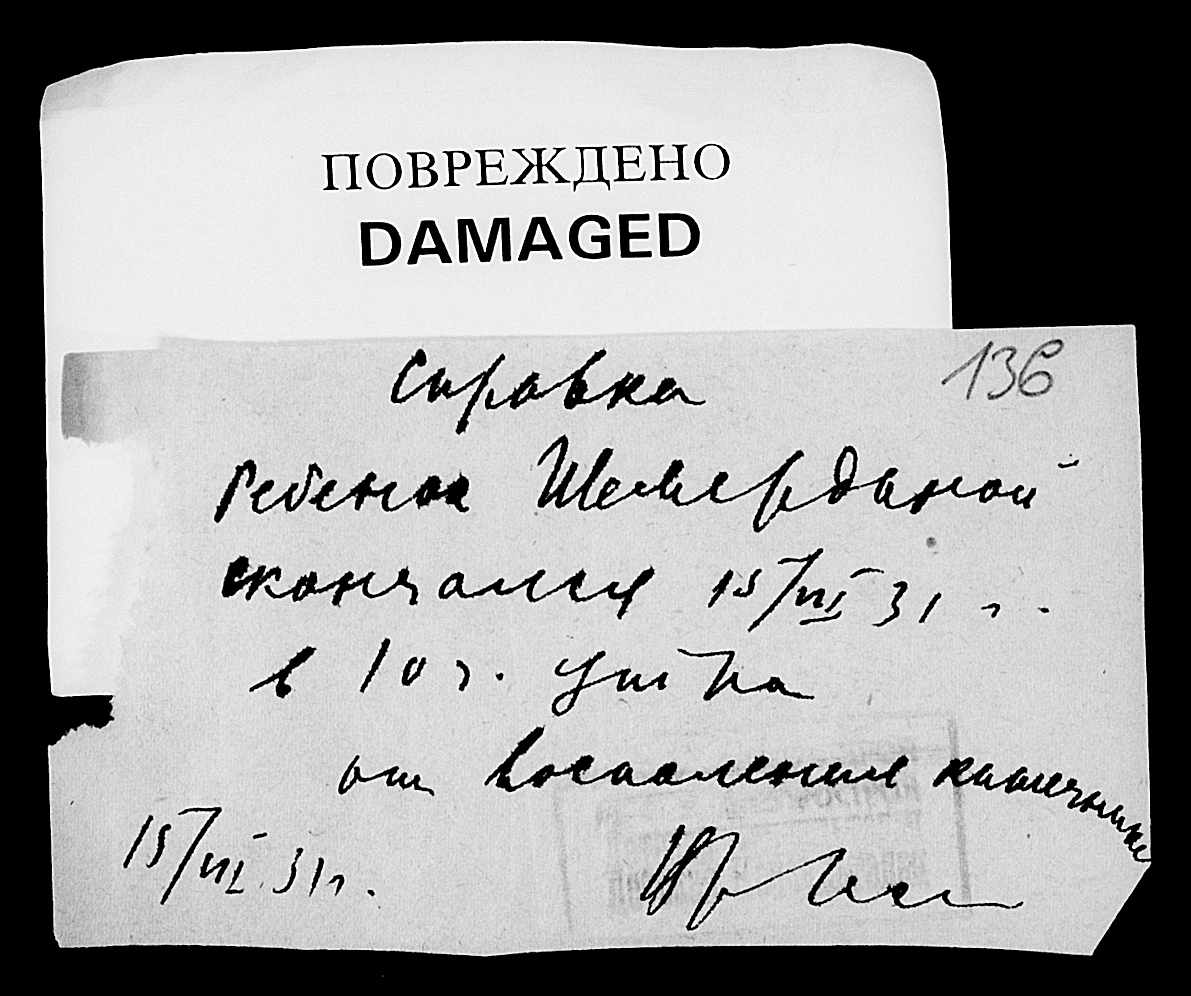 ПОВРЕЖДЕНО
DAMAGED
136
Справка
Ребенок Шемердиной
скончался 15/VII 31 г.
в 10 ч. утра
от воспаления кишечника
15/VII 31 г.